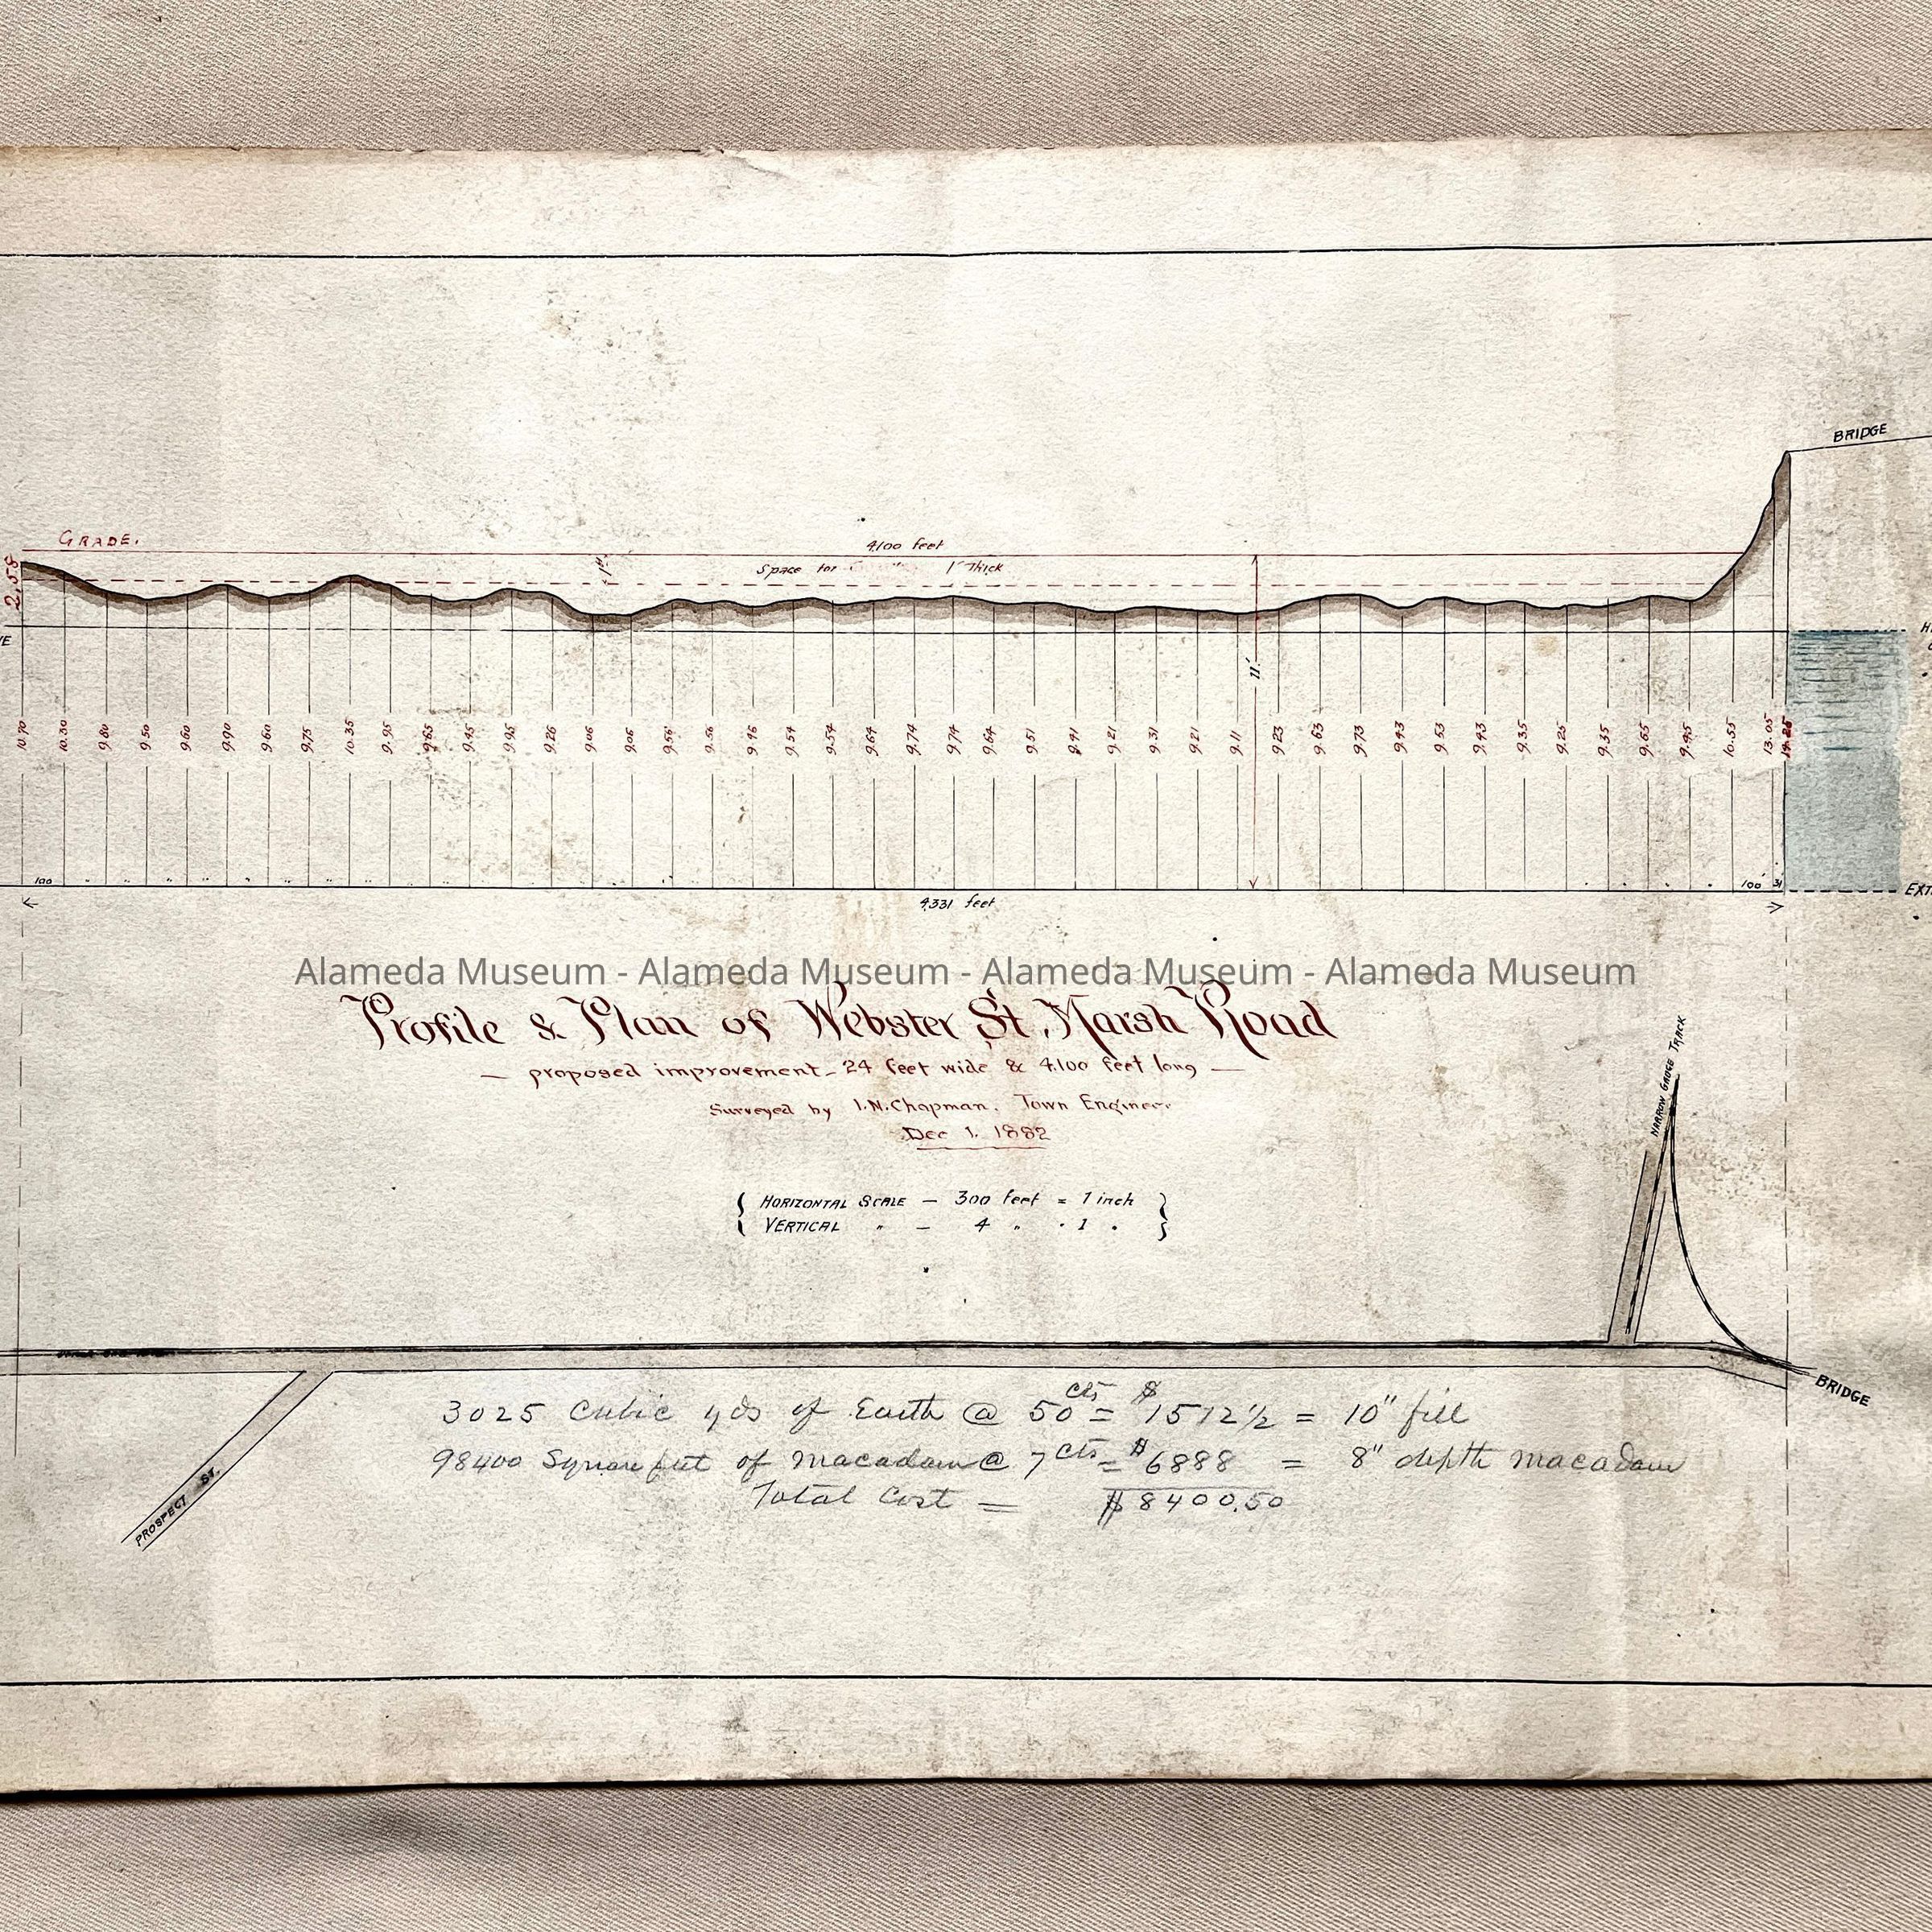 BRIDGE
GRADE.
4100 feet
1'
Space for 1' Thick
2.58
11'
10.70 10.30 9.80 9.50 9.60 9.90 9.60 9.75 10.35 9.95 9.65 9.45 9.95 9.26 9.06 9.06 9.56 9.56 9.46 9.54 9.54 9.64 9.74 9.74 9.64 9.51 9.41 9.21 9.31 9.21 9.11 9.23 9.63 9.73 9.43 9.53 9.43 9.35 9.25 9.35 9.65 9.45 10.55 13.05
100 " " " " " " " " 100' 31
EXT
4331 feet
Alameda Museum - Alameda Museum - Alameda Museum - Alameda Museum
Profile & Plan of Webster St. Marsh Road
— proposed improvement — 24 feet wide & 4100 feet long —
Surveyed by I.N. Chapman. Town Engineer
Dec 1. 1882
{ HORIZONTAL SCALE — 300 feet = 1 inch }
{ VERTICAL " — 4 " " 1 " }
NARROW GAUGE TRACK
BRIDGE
PROSPECT ST.
3025 Cubic yds of Earth @ 50 cts = $1512 1/2 = 10" fill
98400 Square feet of macadam @ 7 cts = $6888 = 8" depth macadam
Total Cost = $8400.50